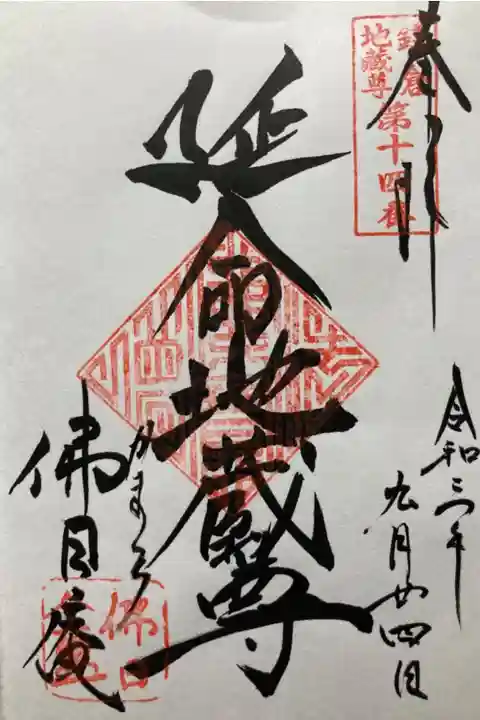 奉拝
鎌倉
地蔵尊
第十四番
令和三年
九月廿四日
延命地蔵尊
かまくら
佛日庵
佛日